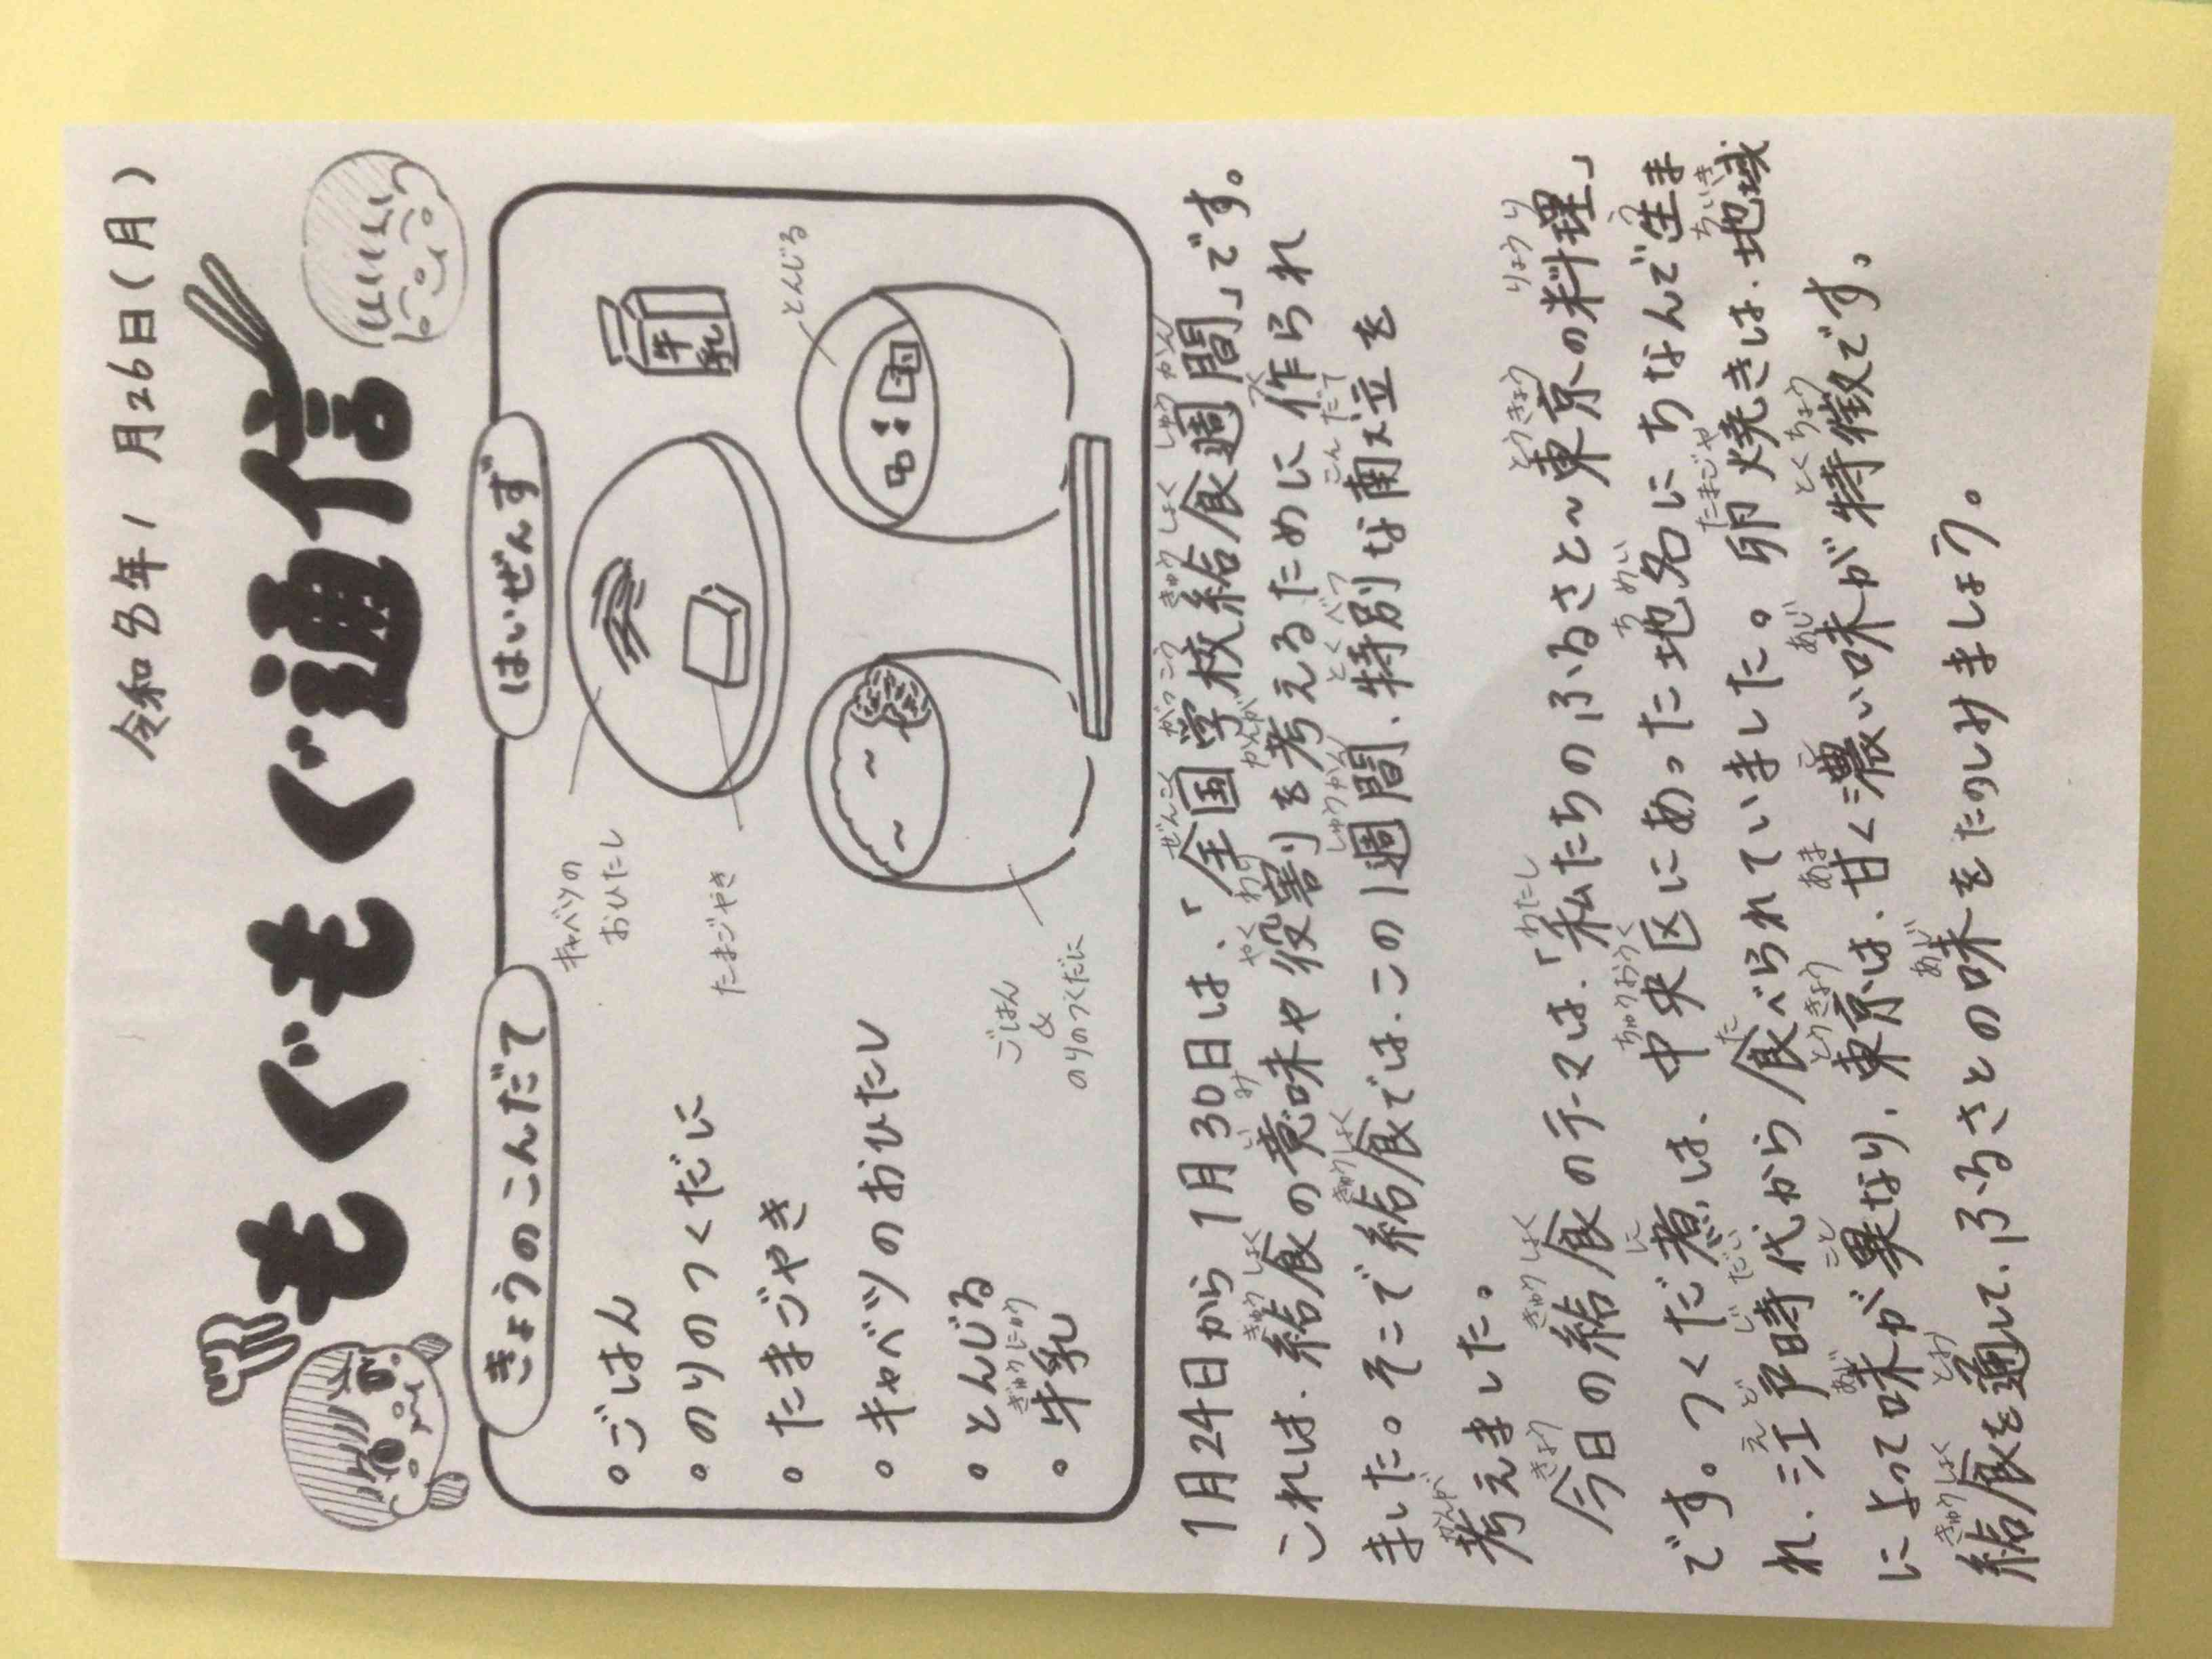 令和8年1月26日(月)
もぐもぐ通信
きょうのこんだて
はいぜんず
・ごはん
・のりのつくだに
・たまごやき
・キャベツのおひたし
・とんじる
・牛乳
ぎゅうにゅう
キャベツの
おひたし
たまごやき
ごはん
&
のりのつくだに
牛乳
とんじる
1月24日から1月30日は、「全国学校給食週間」です。
これは、給食の意味や役割を考えるために作られ
ました。そこで給食では、この1週間、特別な献立を
考えました。
今日の給食のテーマは、「私たちのふるさと〜東京の料理」
です。つくだ煮は、中央区にあった地名にちなんで生ま
れ、江戸時代から食べられていました。卵焼きは、地域
によって味が異なり、東京は、甘く濃い味が特徴です。
給食を通して、ふるさとの味をたのしみましょう。